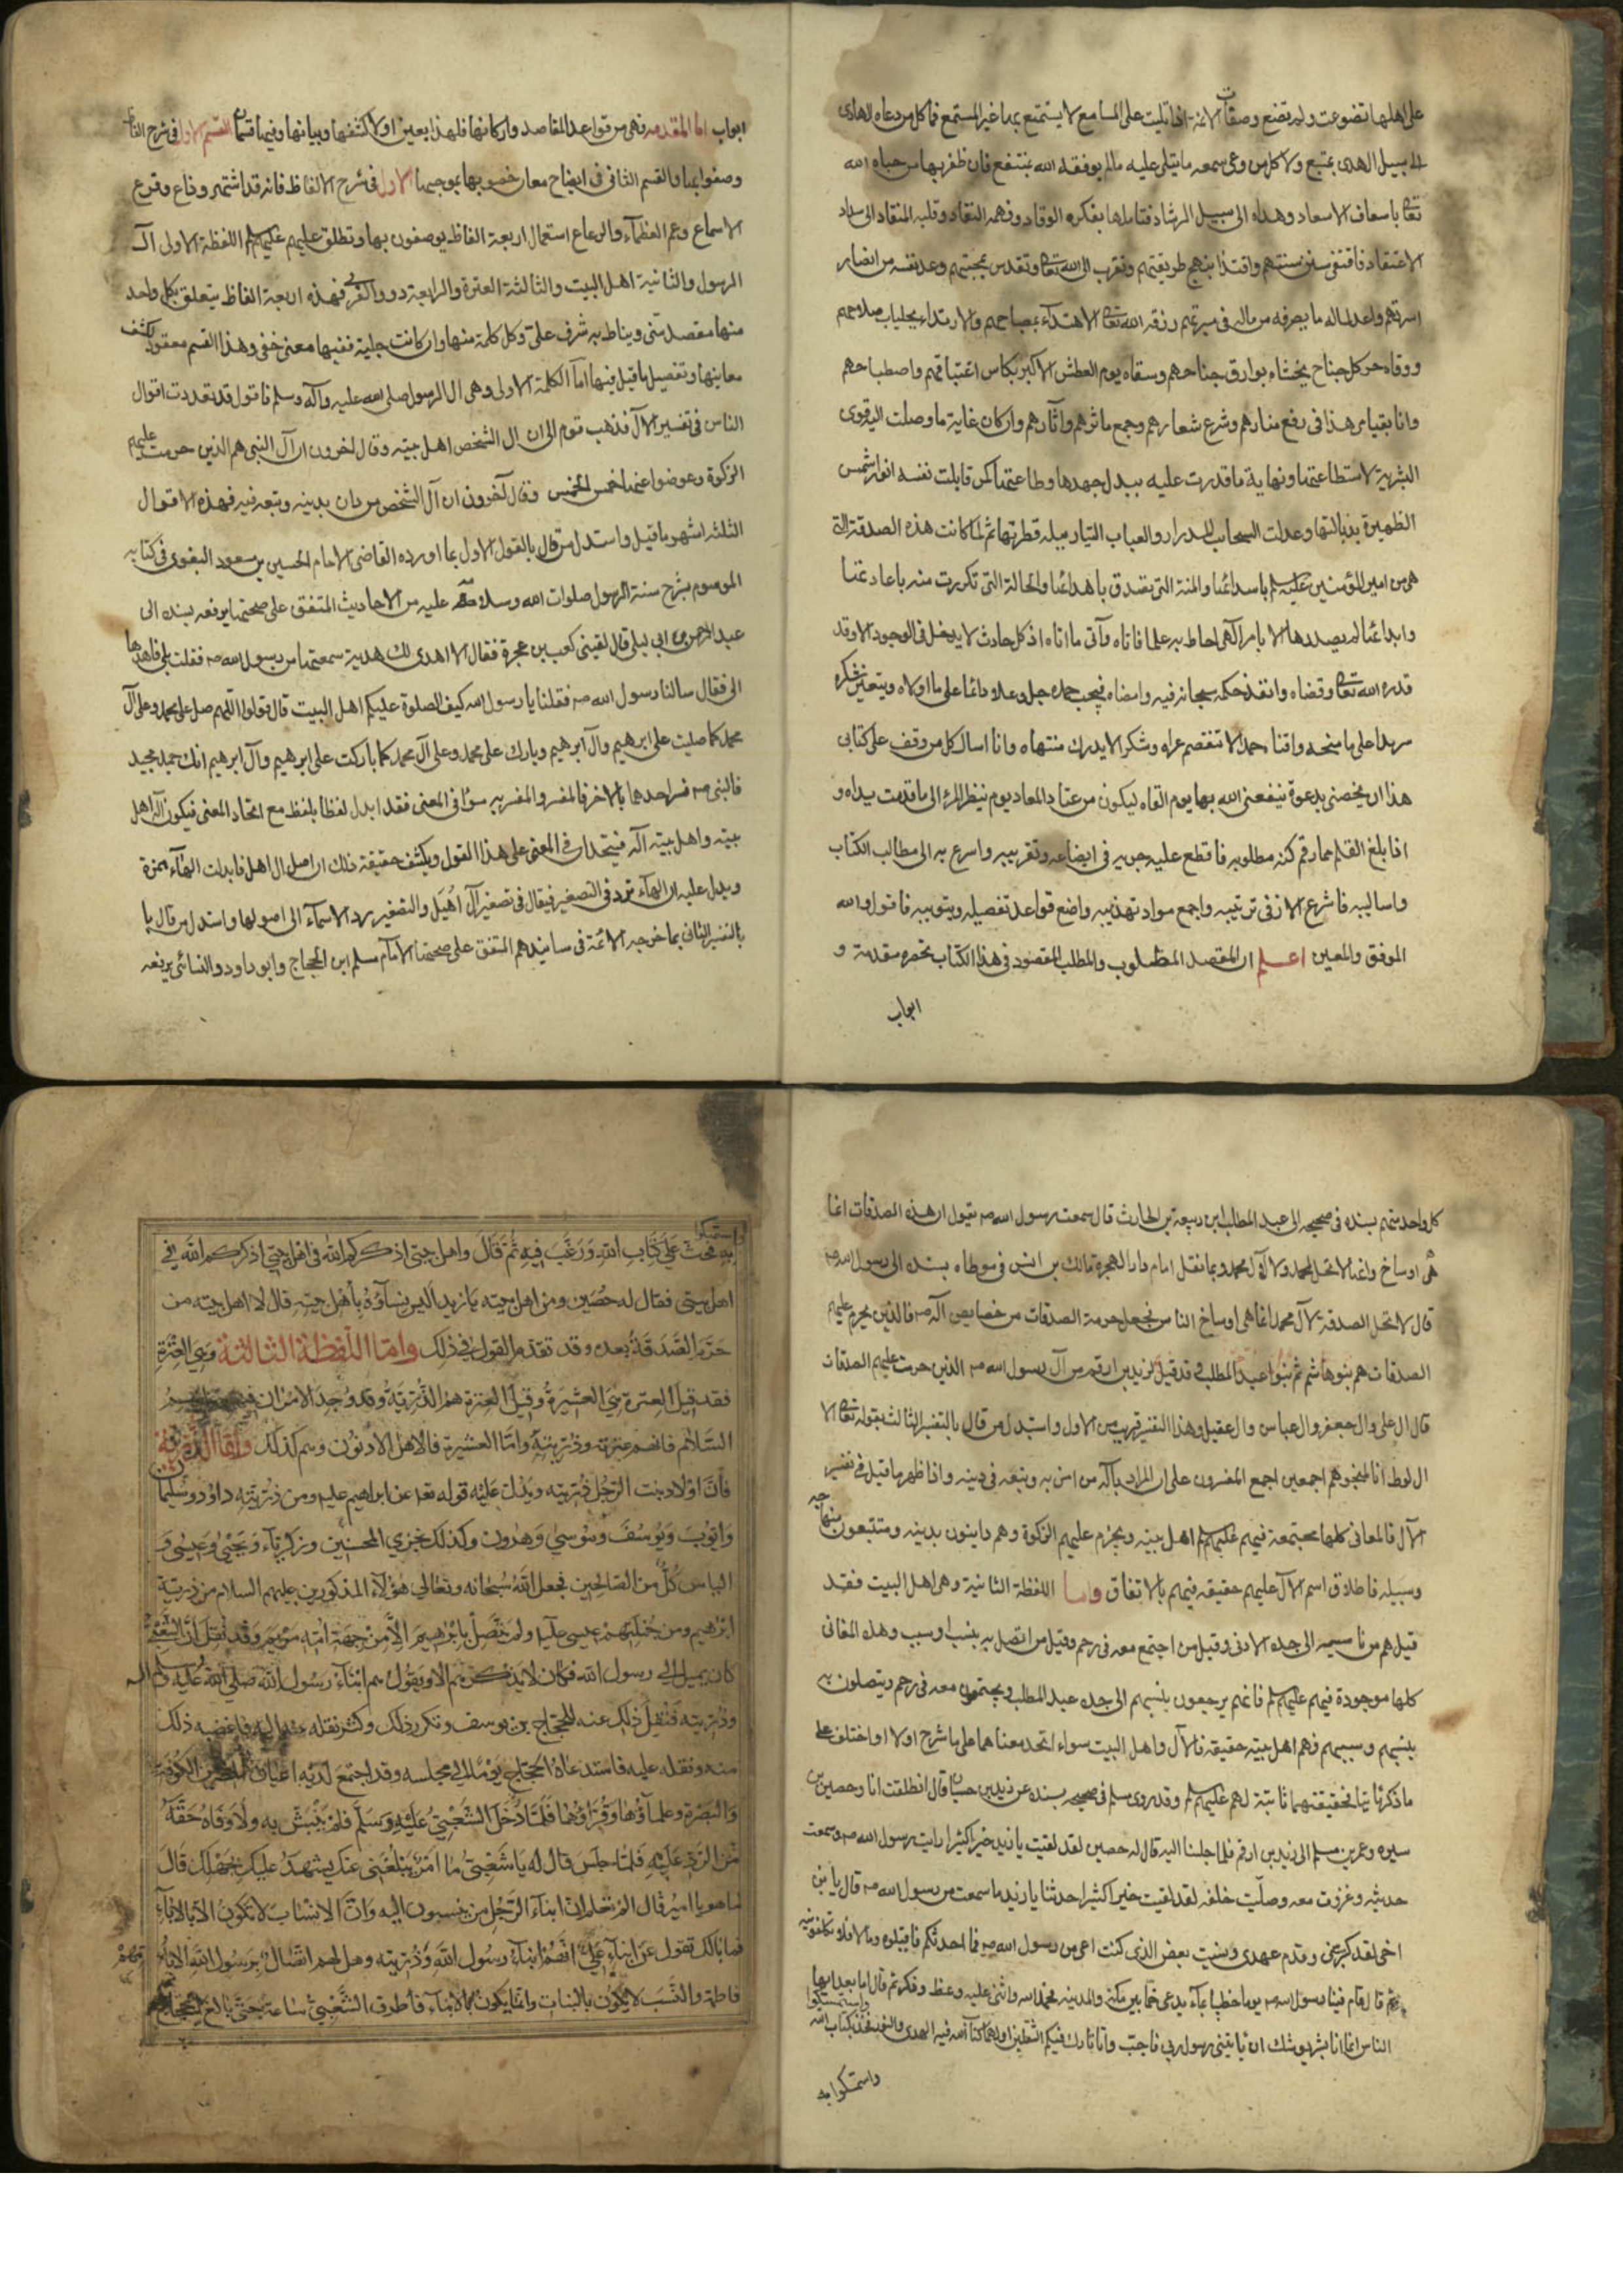 على اهلها تضوعت ولم تضع وصفات الائمة اذا تليت على السامع لا يستمتع بها غير المستمع فما كل من دعاه الهادى
الى سبيل الهدى بمتبع ولا كل من وعى سمعه ما يتلى عليه ما لم يوفقه الله بمنتفع فان ظفر بها من حباه الله
تعالى باسعاف الاسعاد وهداه الى سبيل الرشاد فتاملها بفكره الوقاد وفهمه النقاد وقلبه المنقاد الى سداد
الاعتقاد فاقتفى سنن سنتهم واقتدا بنهج طريقتهم وتقرب الى الله تعالى وتقدس بمحبتهم وعد نفسه من انصار
اسرتهم واعد لماله ما يصرفه من ماله فى مبرتهم رزقه الله تعالى الاهتداء بمصباحهم والارتداء بجلباب صلاحهم
ووقاه حر كل جناح يخشاه بوارق جناحهم وسقاه يوم العطش الاكبر بكاس اغتباقهم واصطباحهم
وانا بقيامى هذا فى رفع منارهم وشرع شعارهم وجمع ماثرهم وآثارهم وان كان غاية ما وصلت اليه قوى
البشرية لاستطاعتها ونهاية ما قدرت عليه ببذل جهدها وطاعتها كمن قابلت نفسه انوار شمس
الظهيرة بذبالتها وعدلت السحاب المدرار والعباب التيار ببلة قطرتها ثم لما كانت هذه الصدقة التى
هى من امير المؤمنين عليه السلم باسدائها والمنة التى تصدق باهدائها والحالة التى تكررت منه باعادتها
وابدائها لم يصدرها الا بامر آلهى احاط به علما فاتاه وآتى ما اتاه اذ كل حادث لا يدخل فى الوجود الا وقد
قدره الله تعالى وقضاه وانفذ حكمه سبحانه فيه وامضاه فيجب حمده جل وعلا دائما على ما اولاه ويتعين شكره
سرمدا على ما منحه واقناه حمدا لا تنفصم عراه وشكرا لا يدرك منتهاه وانا اسال كل من وقف على كتابى
هذا ان يخصنى بدعوة ينفعنى الله بها يوم القاه ليكون من عتاد المعاد يوم ينظر المرء الى ما قدمت يداه و
اذا بلغ القلم مما رقم كنه مطلوبه فاقطع عليه جريه فى ايضاعه وتقريبه واسرع به الى مطالب الكتاب
واساليبه فاشرع الان فى ترتيبه واجمع مواد تهذيبه واضع قواعد تفصيله وتبويبه فاقول والله
الموفق والمعين اعلم ان المقصد المطلوب والمطلب المقصود فى هذا الكتاب يحصره مقدمة و
ابواب
ابواب اما المقدمه فهى من قواعد المقاصد واركانها فلهذا يعين اولا كشفها وبيانها وفيها قسمان القسم الاول فى شرح الفاظ
وصفوا بها والقسم الثانى فى ايضاح معان خصوا بها بموجبها الاول فى شرح الالفاظ فانه قد اشتهر وذاع وقرع
الاسماع وعم العظماء والرعاع استعمال اربعة الفاظ يوصفون بها وتطلق عليهم عليهم السلم اللفظة الاولى آل
الرسول والثانية اهل البيت والثالثة العترة والرابعة ذوو القربى فهذه اربعة الفاظ يتعلق بكل واحد
منها مقصد سنى ويناط به شرف على وكل كلمة منها وان كانت جلية ففيها معنى خفى وهذا القسم معقود لكشف
معانيها وتفصيل ما قيل فيها اما الكلمة الاولى وهى ال الرسول صلى الله عليه وآله وسلم فاقول قد تعددت اقوال
الناس فى تفسير الآل فذهب قوم الى ان ال الشخص اهل بيته وقال اخرون ان آل النبى هم الذين حرمت عليهم
الزكوة وعوضوا عنها خمس الخمس وقال آخرون ان آل الشخص من دان بدينه وتبعه فيه فهذه الاقوال
الثلثة اشهر ما قيل واستدل من قال بالقول الاول بما اورده القاضى الامام الحسين بن مسعود البغوى فى كتابه
الموسوم بشرح سنة الرسول صلوات الله وسلامه عليه من الاحاديث المتفق على صحتها يرفعه بسنده الى
عبد الرحمن بن ابى ليلى قال لقينى كعب بن عجرة فقال الا اهدى لك هدية سمعتها من رسول الله ص فقلت بلى فاهدها
الى فقال سالنا رسول الله ص فقلنا يا رسول الله كيف الصلوة عليكم اهل البيت قال قولوا اللهم صل على محمد وعلى آل
محمد كما صليت على ابرهيم وآل ابرهيم وبارك على محمد وعلى آل محمد كما باركت على ابرهيم وآل ابرهيم انك حميد مجيد
فالنبى ص فسر احدهما بالاخر فالمفسر والمفسر به سواء فى المعنى فقد ابدل لفظا بلفظ مع اتحاد المعنى فيكون آله اهل
بيته واهل بيته آله فيتحدان فى المعنى على هذا القول ويكشف حقيقة ذلك ان اصل ال اهل فابدلت الهاء همزة
ويدل عليه ان الهاء ترد فى التصغير فيقال فى تصغير آل اهيل والتصغير يرد الاسماء الى اصولها واستدل من قال با
بالتفسير الثانى بما خرجه الائمة فى مسانيدهم المتفق على صحتها الامام مسلم ابن الحجاج وابو داود والنسائى يرفعه
كل واحد منهم بسنده فى صحيحه الى عبد المطلب ابن ربيعة بن الحارث قال سمعت رسول الله ص يقول ان هذه الصدقات انما
هى اوساخ وانها لا تحل لمحمد ولا لآل محمد وبما نقل امام دار الهجرة مالك بن انس فى موطاه بسنده الى رسول الله ص
قال لا تحل الصدقة لآل محمد انما هى اوساخ الناس فجعل حرمة الصدقات من خصايص آله ص فالذين يحرم عليهم
الصدقات هم بنو هاشم ثم بنوا عبد المطلب فقد قيل لزيد بن ارقم من آل رسول الله ص الذين حرمت عليهم الصدقات
قال ال على وال جعفر وال عباس وال عقيل وهذا التفسير قريب من الاول واستدل من قال بالتفسير الثالث بقوله تعالى الا
ال لوط انا لمنجوهم اجمعين اجمع المفسرون على ان المراد بآله من امن به وتبعه فى دينه واذا ظهر ما قيل فى تفسير
الآل فالمعانى كلها مجتمعة فيهم عليهم السلم اهل بيته ويحرم عليهم الزكوة وهم داينون بدينه ومتتبعون منهاجه
وسبيله فاطلاق اسم الآل عليهم حقيقة فيهم بالاتفاق واما اللفظة الثانية وهى اهل البيت فقد
قيل هم من ناسبه الى جده الادنى وقيل من اجتمع معه فى رحم وقيل من اتصل به بنسب او سبب وهذه المعانى
كلها موجودة فيهم عليهم السلم فانهم يرجعون بنسبهم الى جده عبد المطلب ويجتمعون معه فى رحم ويتصلون به
بنسبهم وسببهم فهم اهل بيته حقيقة فالآل واهل البيت سواء اتحد معناهما على ما شرح اولا او اختلف على
ما ذكر ثانيا فحقيقتهما ثابتة لهم عليهم السلم وقد روى مسلم فى صحيحه بسنده عن يزيد بن حيان قال انطلقت انا وحصين بن
سبره وعمر بن مسلم الى زيد بن ارقم فلما جلسنا اليه قال له حصين لقد لقيت يا زيد خيرا كثيرا رايت رسول الله ص وسمعت
حديثه وغزوت معه وصليت خلفه لقد لقيت خيرا كثيرا حدثنا يا زيد ما سمعت من رسول الله ص قال يا بن
اخى لقد كبر سنى وقدم عهدى ونسيت بعض الذى كنت اعى من رسول الله ص فما احدثكم فاقبلوه وما لا فلا تكلفونيه
ثم قال قام فينا رسول الله ص يوما خطيبا بماء يدعى خما بين مكة والمدينه فحمد الله واثنى عليه ووعظ وذكر ثم قال اما بعد ايها
الناس انما انا بشر يوشك ان ياتينى رسول ربى فاجيب وانا تارك فيكم الثقلين اولهما كتاب الله فيه الهدى والنور فخذوا بكتاب الله
واستمسكوا
واستمسكوا به
واستمسكوا
به فحث على كتاب الله ورغب فيه ثم قال واهل بيتى اذكركم الله فى اهل بيتى اذكركم الله فى
اهل بيتى فقال له حصين ومن اهل بيته يا زيد اليس نساؤه باهل بيته قال لا اهل بيته من
حرم الصدقة بعده وقد تقدم القول فى ذلك واما اللفظة الثالثة وهى العترة
فقد قيل العترة هى العشيرة وقيل العترة هم الذرية وقد وجد الامران فيهم عليهم
السلام فانهم عترته وذريته واما العشيرة فالاهل الادنون وهم كذلك واما الذرية
فان اولاد بنت الرجل ذريته ويدل عليه قوله تعا عن ابراهيم عليه ومن ذريته داود وسليمان
وايوب ويوسف وموسى وهرون وكذلك نجزى المحسنين وزكرياء ويحيى وعيسى و
الياس كل من الصالحين فجعل الله سبحانه وتعالى هؤلاء المذكورين عليهم السلام من ذرية
ابرهيم ومن جملتهم عيسى عليه ولم يتصل بابرهيم الا من جهة امه مريم وقد نقل ان الشعبى
كان يميل الى رسول الله فكان لا يذكرهم الا ويقول هم ابناء رسول الله صلى الله عليه وآله
وذريته فنقل ذلك عنه للحجاج بن يوسف وتكرر ذلك وكثر نقله عنه اليه فاغضبه ذلك
منه ونقله عليه فاستدعاه الحجاج يوما الى مجلسه وقد اجتمع لديه اعيان المصرين الكوفة
والبصرة وعلماؤها وقراؤها فلما دخل الشعبى عليه وسلم فلم يبش به ولا وفاه حقه
من الرد عليه فلما جلس قال له يا شعبى ما امر يبلغنى عنك يشهد عليك بجهلك قال
ما هو يا امير قال الم تعلم ان ابناء الرجل من ينسبون اليه وان الانتساب لا تكون الا بالاباء
فما بالك تقول عن ابناء على انهم ابناء رسول الله وذريته وهل لهم اتصال برسول الله الا بامهم
فاطمة والنسب لا يكون بالبنات وانما يكون بالابناء فاطرق الشعبى ساعة حتى بالغ الحجاج